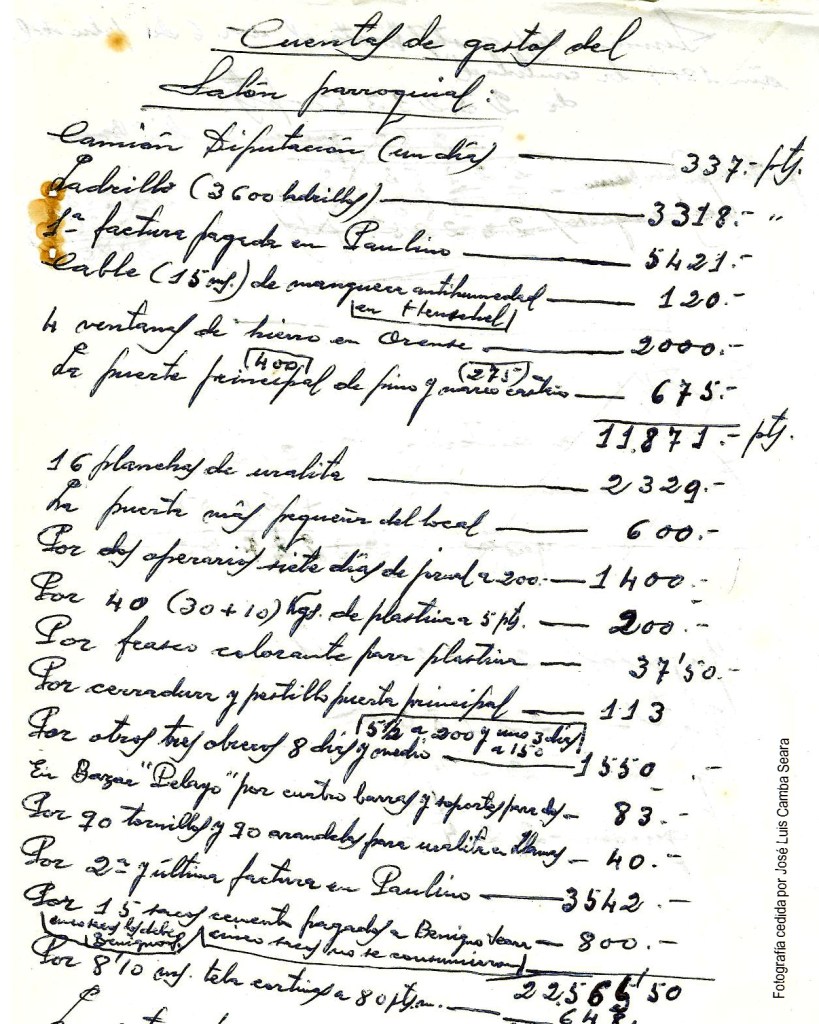 Cuentas de gastos del
Salón parroquial:
Camión Diputación (un día) — 337.- pts.
Ladrillo (3600 ladrillos) — 3318.- "
1ª factura pagada en Paulino — 5421.-
Cable (15 ms.) de manguera antihumedad — 120.-
en Henschel
4 ventanas de hierro en Orense — 2000.-
(400) (275)
La puerta principal de pino y marco castaño — 675.-
11.871.- pts.
16 planchas de uralita — 2329.-
La puerta más pequeña del local — 600.-
Por dos operarios siete días de jornal a 200.- — 1400.-
Por 40 (30+10) Kgs. de plastina a 5 pts. — 200.-
Por frasco colorante para plastina — 37'50.-
Por cerradura y pestillo puerta principal — 113
5 1/2 a 200 y uno 3 días a 150
Por otros tres obreros 8 días y medio — 1550.-
En Bazar "Pelayo" por cuatro barras y soportes para dos — 83.-
Por 90 tornillos y 90 arandelas para uralita en — 40.-
Por 2ª y última factura en Paulino — 3542.-
Por 15 sacos cemento pagados a Benigno — 800.-
cinco sacos los debe Benigno cinco sacos no se consumieron
22.566'50
Por 8'10 ms. tela cortinas a 80 pts. m. — 648.-
Fotografía cedida por José Luis Camba Seara